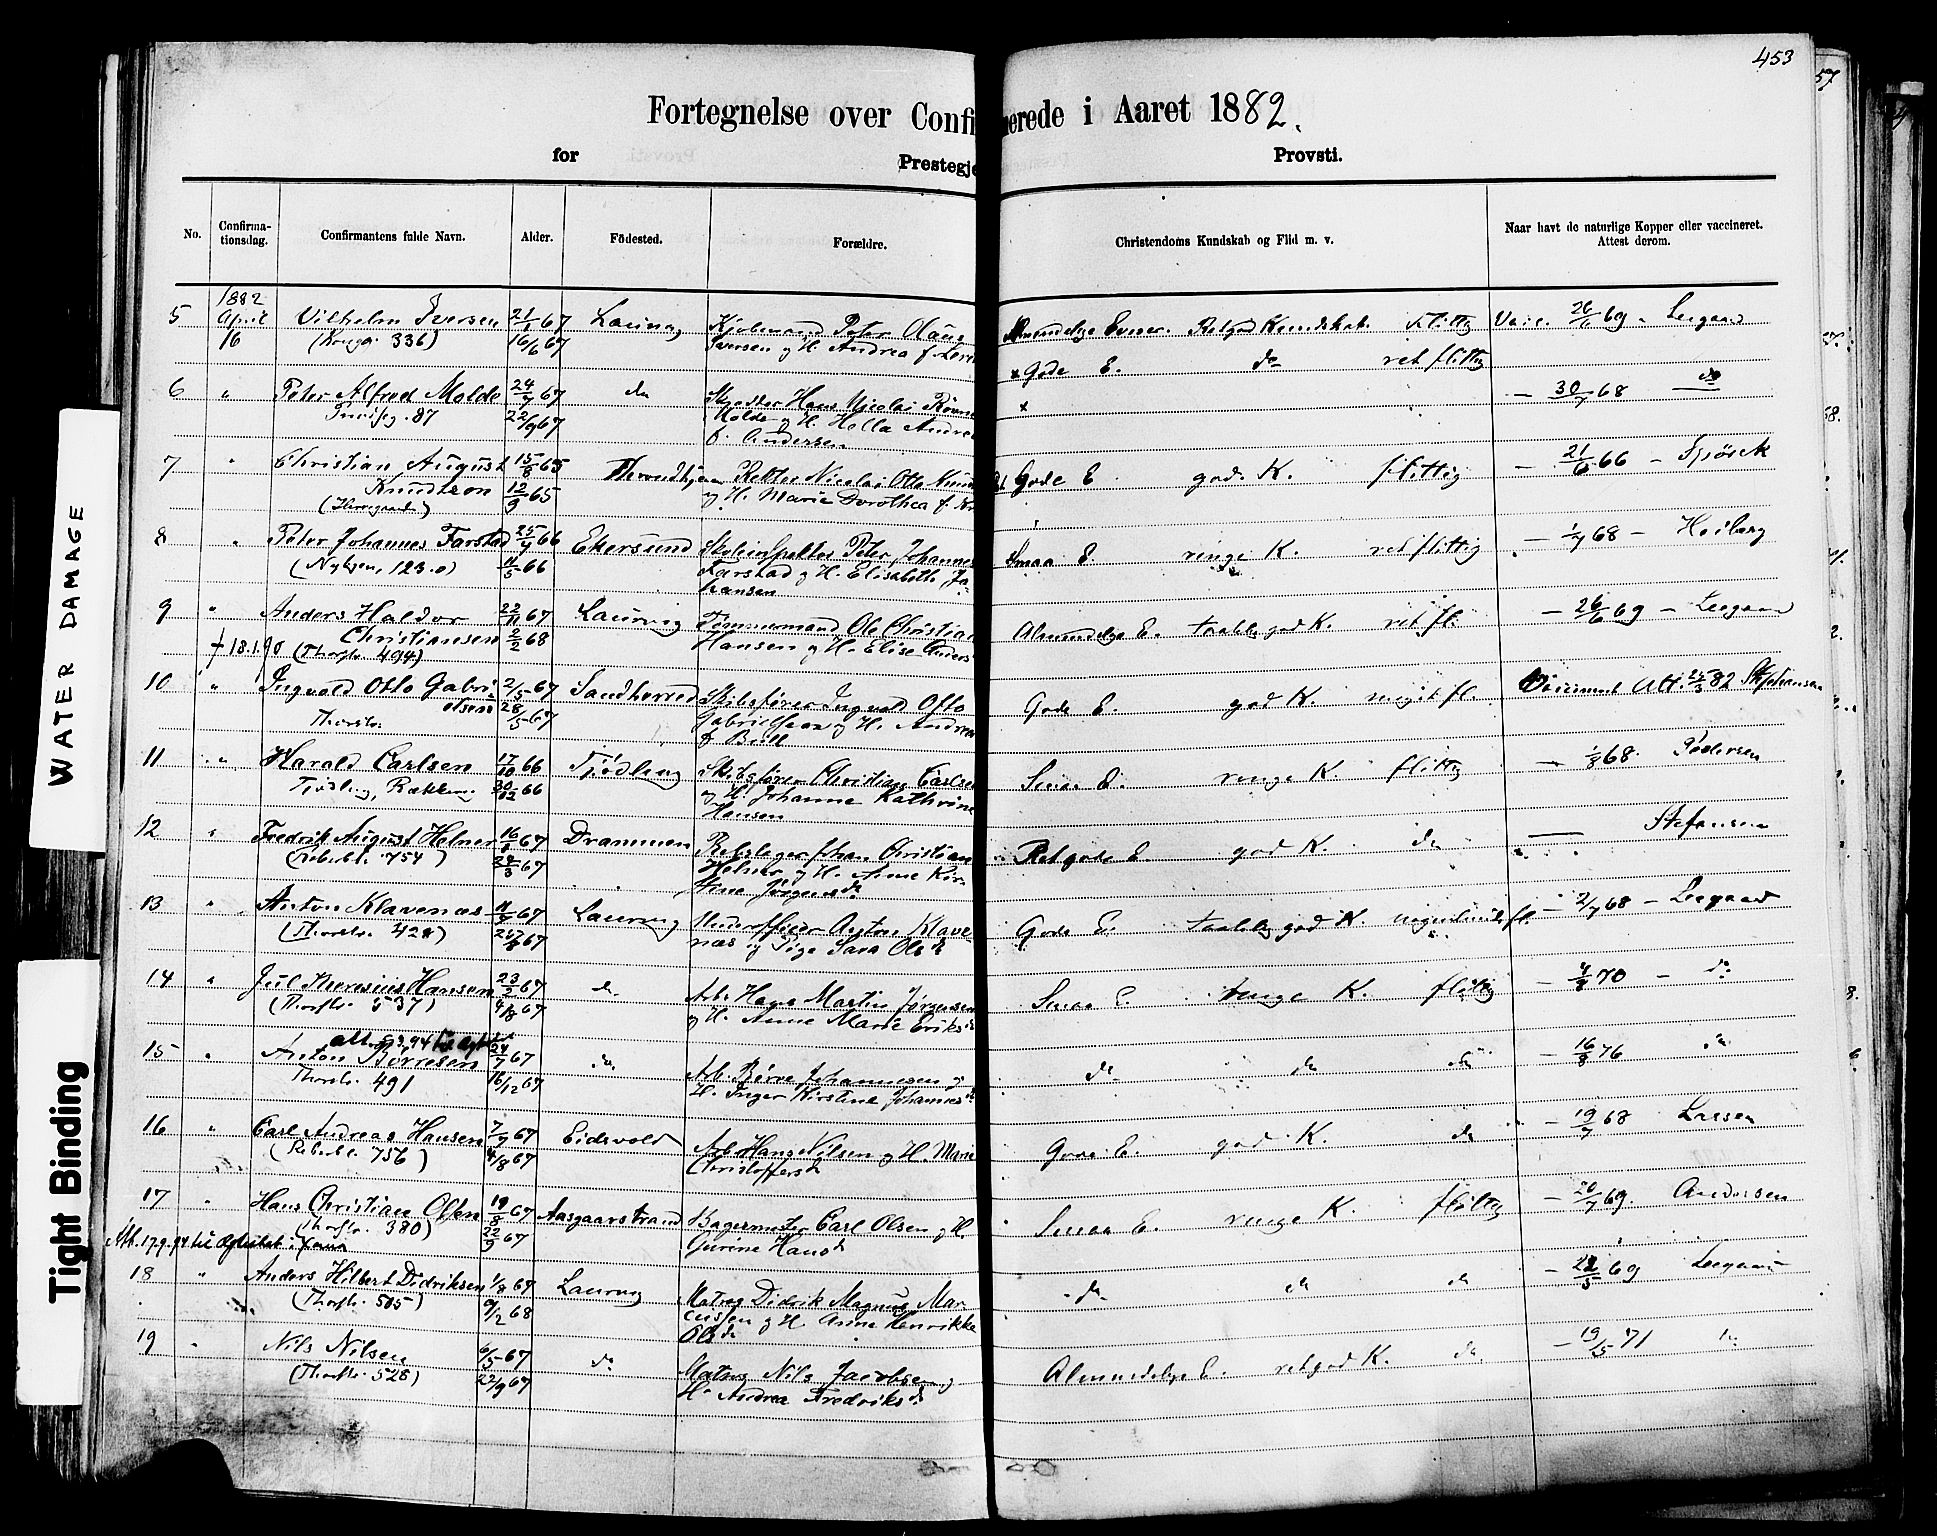 453
57
Fortegnelse over Confi merede i Aaret 1882.
for Prestegje Provsti.
No. Confirma-tionsdag. Confirmantens fulde Navn. Alder. Födested. Forældre. Christendoms Kundskab og Flid m. v. Naar havt de naturlige Kopper eller vaccineret. Attest derom.
1882
5 April Vilhelm Iversen 21/1 67 Laurvig Kjøbmand Peter Claus Almindelige Evner. Retgod Kundskab. Flittig Vacc. 26/6 69 - Leegaard
16 (Kongg. 336) 16/6 67 Iversen og H. Andrea f.
x Gode E. do ret flittig
6 " Peter Alfred Molde 24/7 67 do Hans Nicolai x - 30/7 68 do
87 22/9 67 Molde og H. Andrea
f. Andersen
7 " Christian August 15/8 65 Throndhjem Rektor Nicolai Otto Gode E god K. flittig - 21/6 66 -
Knudtzon 12/9 65 og H. Marie Dorothea f.
8 " Peter Johannes Farstad 25/4 66 Ekersund Peter Johannes Smaa E. ringe K. ret flittig - 1/7 68 - Heiberg
123.0) 11/5 66 Farstad og H. Elisabeth Jo
hansen
9 " Anders Haldor 22/11 67 Laurvig Tømmermand Ole Christian Almindelige E. taalelig god K. ret fl. - 26/6 69 - Leegaard
Christiansen 2/2 68 Hansen og H. Elise Anders
† 18.1.90 (Thorstr. 494)
10 " Ingvald Otto Gabri 2/5 67 Sandherred Skibsfører Ingvald Otto Gode E. god K. meget fl. Att. 25/3 82
elsen 28/5 67 Gabrielsen og H. Andrea
Thorstr. f. Bull
11 " Harald Carlsen 17/10 66 Tjødling Skibsfører Christian Carlsen Smaa E. ringe K. flittig - 1/8 68. Pedersen
Tjødling, 30/12 66 og H. Johanne Kathrine
Hansen
12 " Fredrik August Helner 16/1 67 Drammen Rebslager Johan Christian Ret gode E god K. do Stefansen
(Reberbl. 754) 24/3 67 Helner og H. Anne Kir
stine Jørgensd.
13 " Anton Klavenæs 11/7 67 Laurvig Underofficer Anton Klave Gode E. taalelig god K. - 2/7 68 - Leegaard
(Thorstr. 428) 25/8 67 næs og Pige Sara Olsd.
14 " Jul Theresius Hansen 23/2 67 do Arb. Hans Martin Jørgensen Smaa E. ringe K. flittig - 4/8 70 - do
(Thorstr. 537) 4/8 67 og H. Anne Marie Eriksd.
15 " Anton Børresen 24/7 67 do Arb. Børre Johannesen og do do do - 16/8 76 do
Thorstr. 491 16/12 67 H. Inger Kirstine Johannesd.
16 " Carl Andreas Hansen 7/7 67 Eidsvold Arb. Hans Nilsen og H. Marie Gode E. god K. do - 19/7 68 Larsen
(Reberbl. 756) 4/8 67 Christoffersd.
17 " Hans Christian Olsen 19/8 67 Aasgaarstrand Bagermester Carl Olsen og H. Smaa E. ringe K. flittig - 26/7 69. Andersen
(Thorstr. 380) 22/9 67 Gurine Hansd.
Att. 17.9.94 til
18 " Anders Hilbert Didriksen 1/8 67 Laurvig Matros Didrik Magnus Mar - do do do - 22/5 69 Leegaard
(Thorstr. 505) 9/2 68 cussen og H Anne Henrikke
Olsd.
19 " Nils Nilsen 6/5 67 do Matros Nils Jacobsen og Almindelige E. ret god K. do - 19/5 71 do
(Thorstr. 528) 22/9 67 H. Andrea Fredriksd.
WATER DAMAGE
Tight Binding